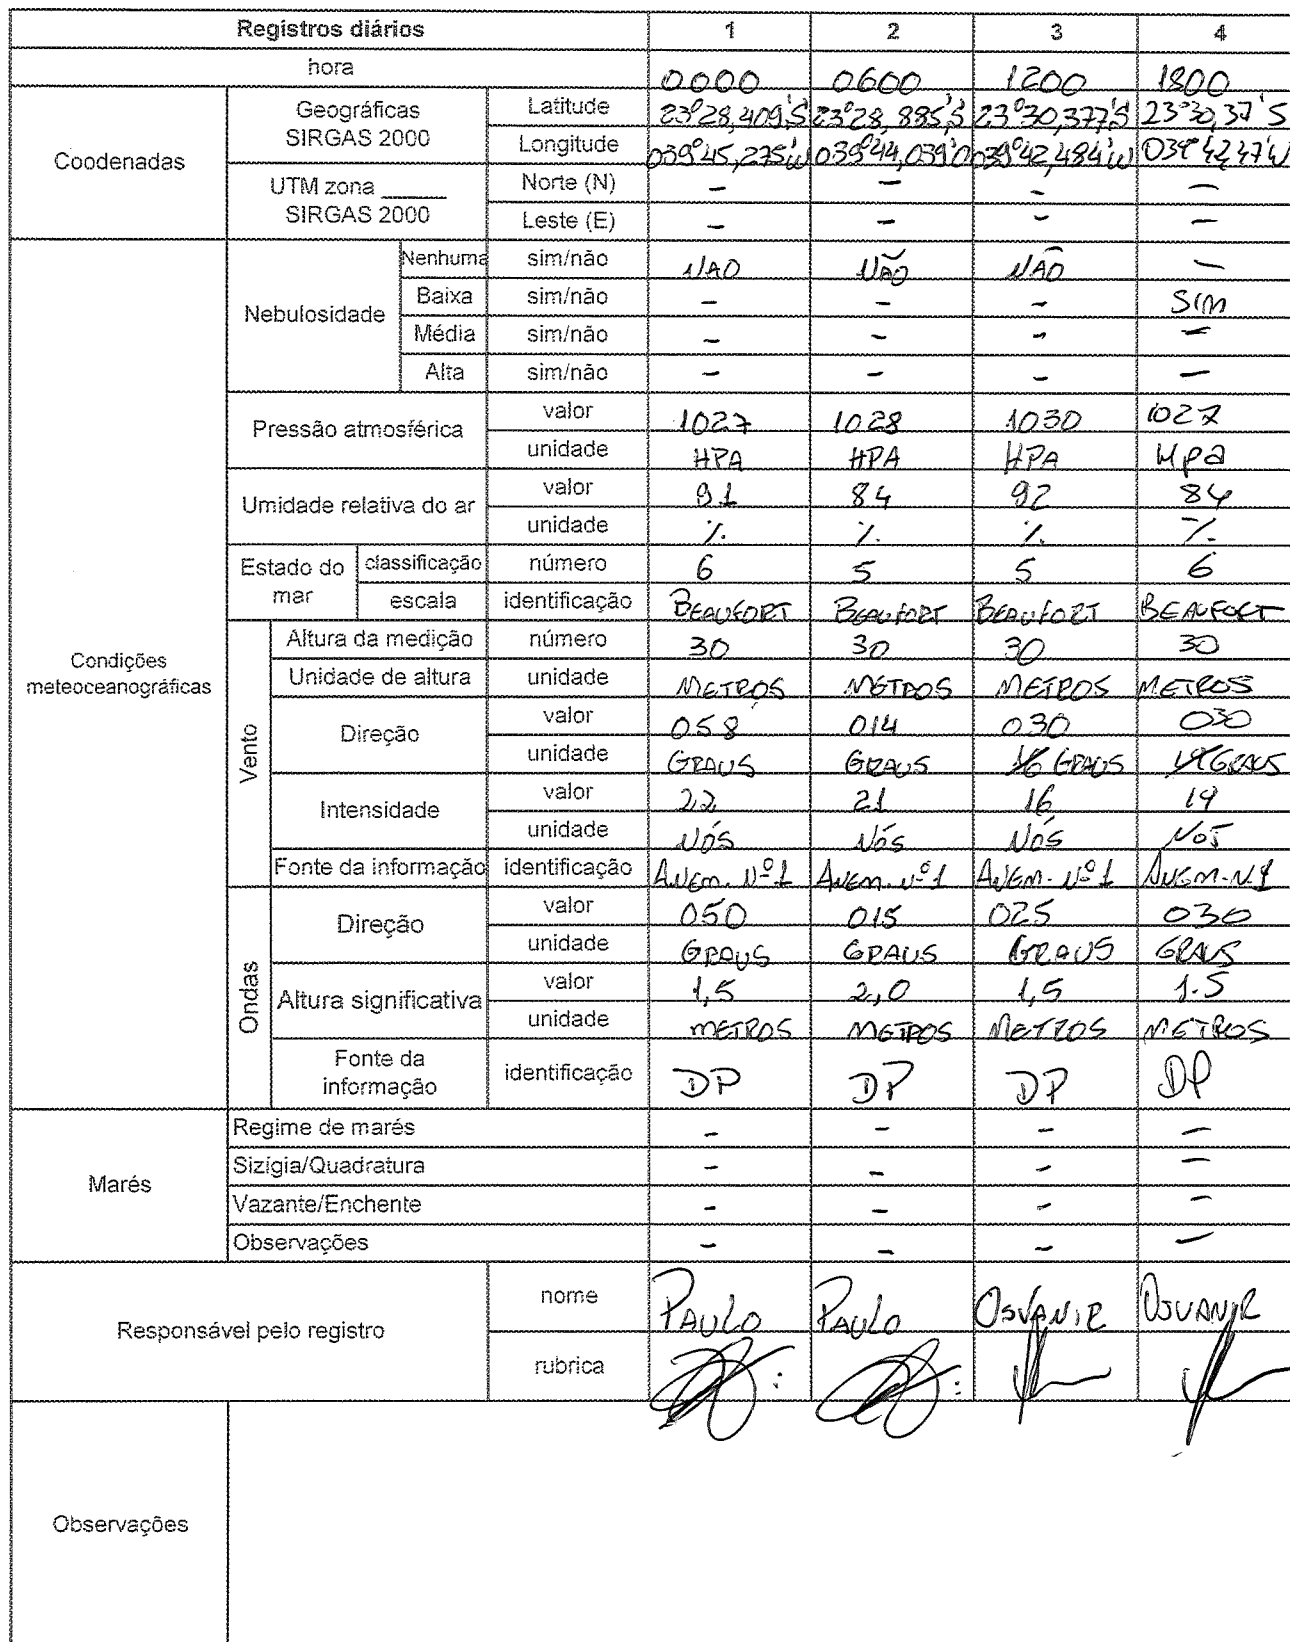 Registros diários 1 2 3 4
hora 0000 0600 1200 1800
Coodenadas Geográficas SIRGAS 2000 Latitude 23°28,409'S 23°28,885'S 23°30,377'S 23°30,37'S
Longitude 039°45,275'W 039°44,039'O 039°42,484'W 039°42,47'W
UTM zona ______ SIRGAS 2000 Norte (N) - - - -
Leste (E) - - - -
Condições meteoceanográficas Nebulosidade Nenhuma sim/não NAO NÃO NÃO -
Baixa sim/não - - - SIM
Média sim/não - - - -
Alta sim/não - - - -
Pressão atmosférica valor 1027 1028 1030 1027
unidade HPA HPA HPA Hpa
Umidade relativa do ar valor 91 84 92 84
unidade % % % %
Estado do mar classificação número 6 5 5 6
escala identificação BEAUFORT BEAUFORT BEAUFORT BEAUFORT
Vento Altura da medição número 30 30 30 30
Unidade de altura unidade METROS METROS METROS METROS
Direção valor 058 014 030 030
unidade GRAUS GRAUS GRAUS GRAUS
Intensidade valor 22 21 16 19
unidade NÓS NÓS NÓS NOS
Fonte da informação identificação ANEM. Nº1 ANEM. Nº1 ANEM. Nº1 ANEM. N.1
Ondas Direção valor 050 015 025 030
unidade GRAUS GRAUS GRAUS GRAUS
Altura significativa valor 1,5 2,0 1,5 1.5
unidade METROS METROS METROS METROS
Fonte da informação identificação DP DP DP DP
Marés Regime de marés - - - -
Sizígia/Quadratura - - - -
Vazante/Enchente - - - -
Observações - - - -
Responsável pelo registro nome PAULO PAULO OSVANIR OSVANIR
rubrica
Observações